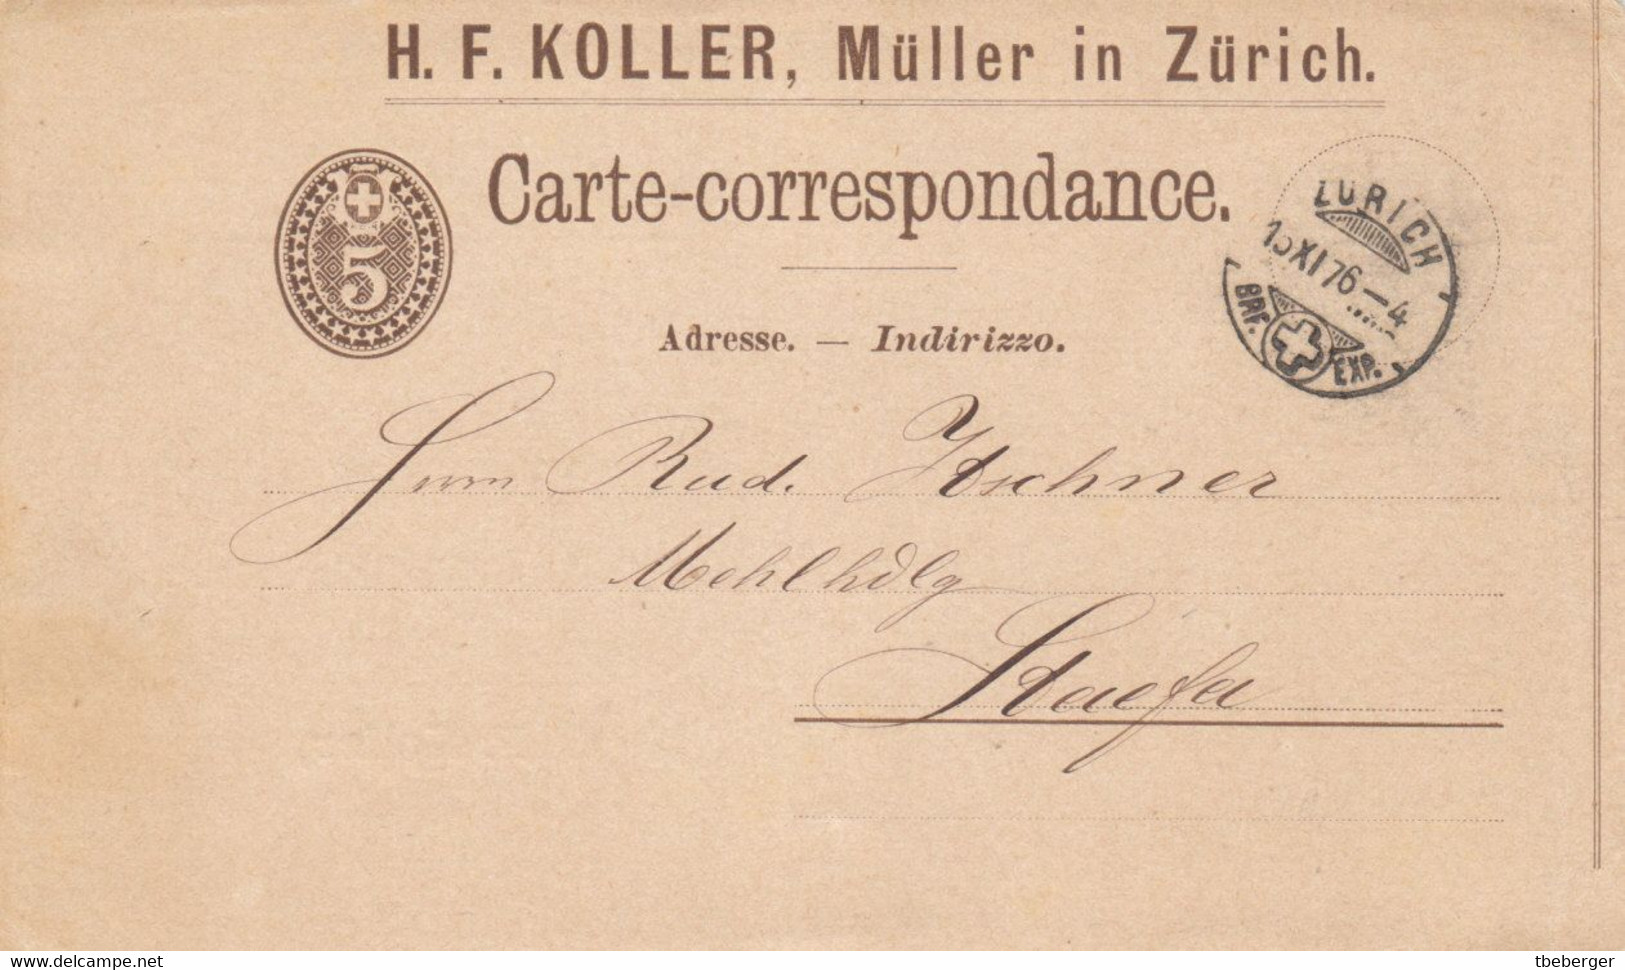 H. F. KOLLER, Müller in Zürich.
Carte-correspondance.
5
ZURICH
XI 76 – 4
BRF. EXP.
Adresse. — Indirizzo.
Herrn Rud.
Mehlhdlg
Staefa
delcampe.net
tbeberger